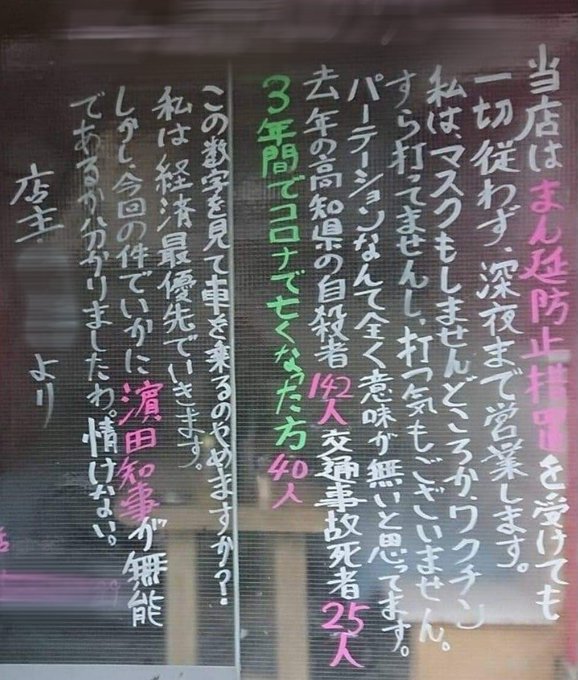 当店はまん延防止措置を受けても
一切従わず、深夜まで営業します。
私は、マスクもしませんどころか、ワクチン
すら打ってませんし、打つ気もございません。
パーテーションなんて全く意味が無いと思ってます。
去年の高知県の自殺者142人交通事故死者25人
3年間でコロナで亡くなった方40人
この数字を見て車を乗るのやめますか?
私は経済最優先でいきます。
しかし、今回の件でいかに濱田知事が無能
であるか分かりましたわ。情けない。
店主
より